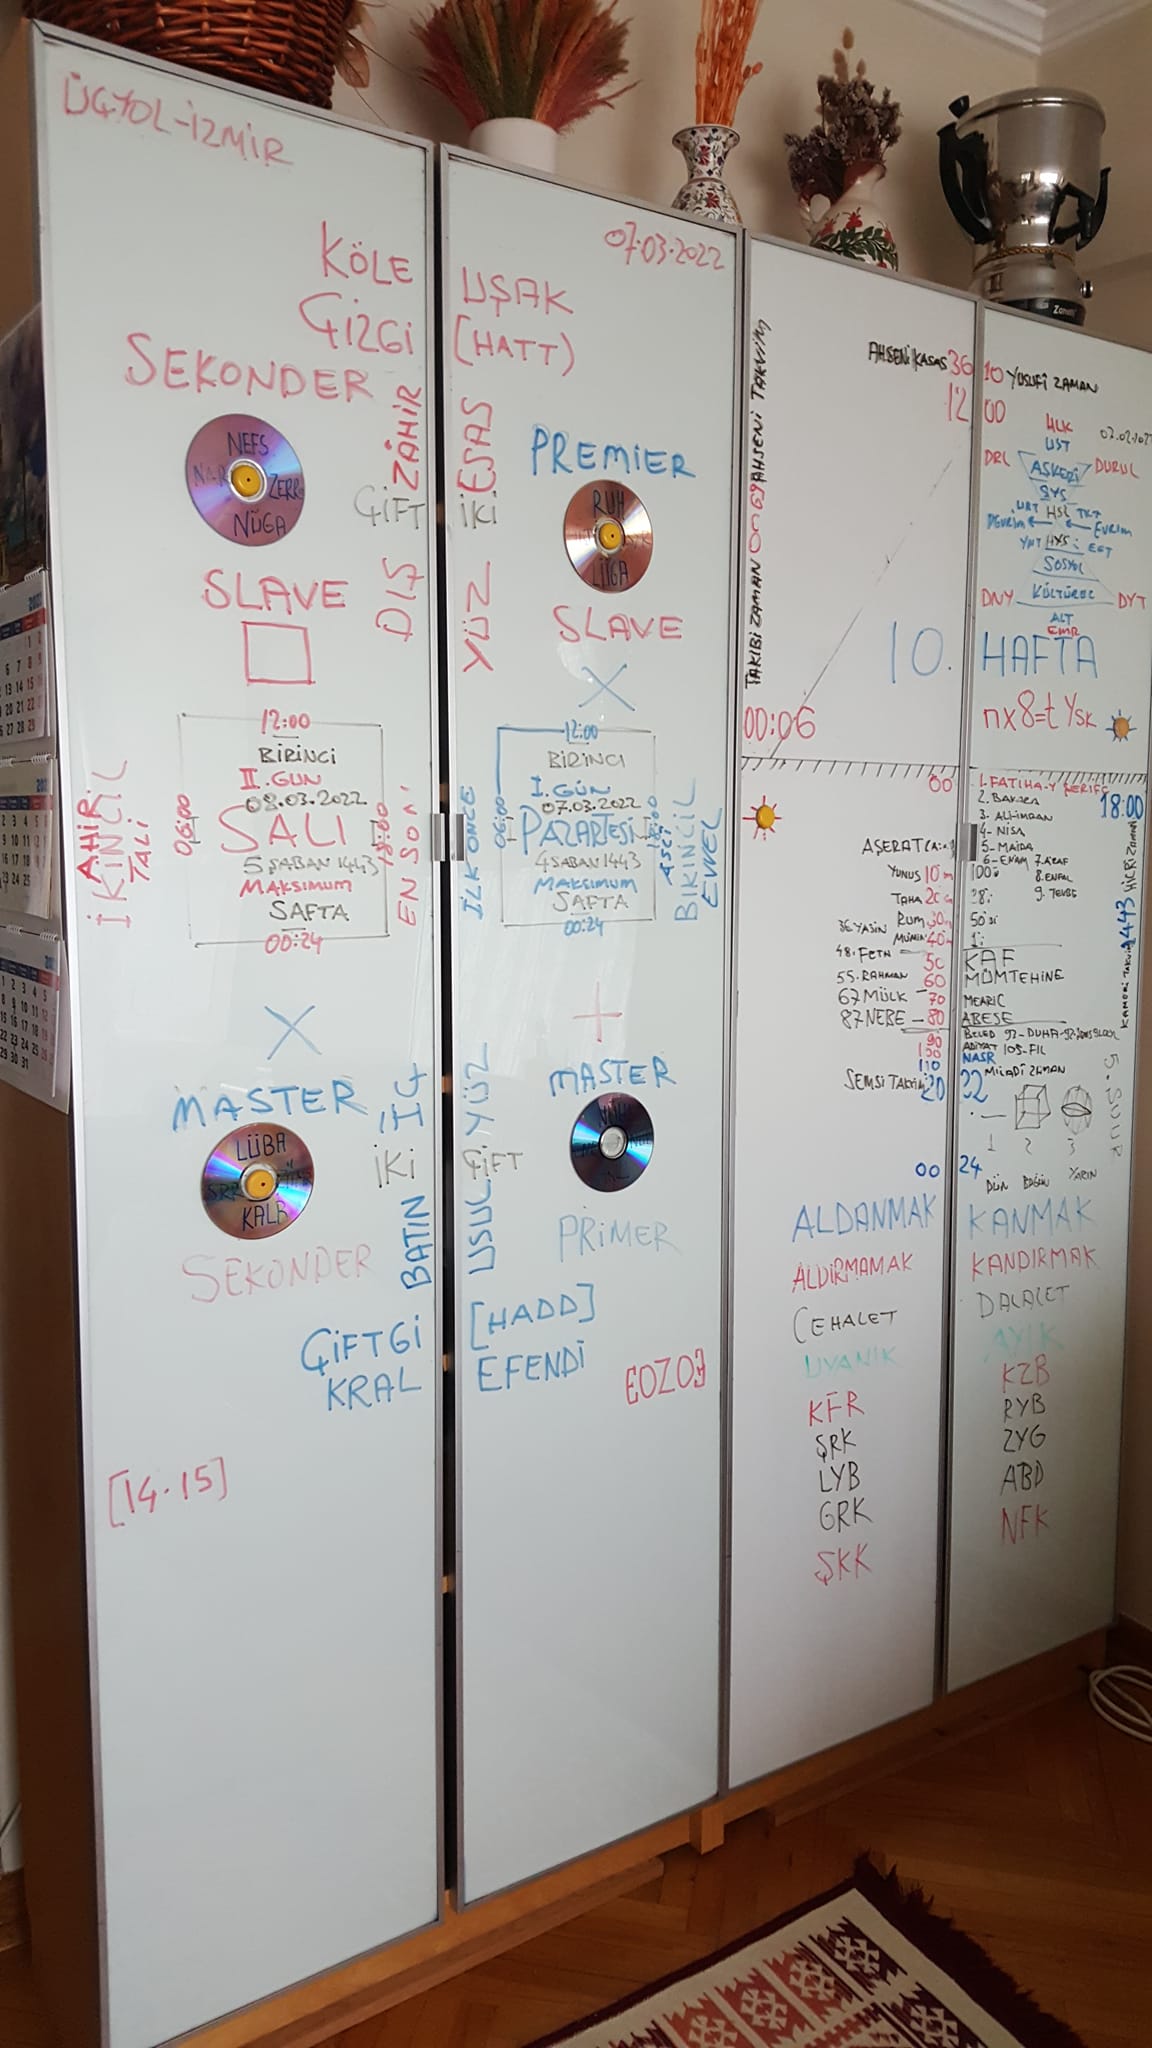 ÜÇYOL-İZMİR
KÖLE
ÇİZGİ
SEKONDER
ZÂHİR
NEFS
NAR ZERR
NÜGA
ÇİFT
DIŞ
SLAVE
12:00
BİRİNCİ
II. GÜN
08.03.2022
06:00 SALI 18:00
5 ŞABAN 1443
MAKSIMUM
SAFTA
00:24
AHİR
İKİNCİL
TALİ
EN SON
MASTER
İÇ
LÜBA
SRR
KALB
İKİ
BATIN
SEKONDER
ÇİFTÇİ
KRAL
[14.15]
07.03.2022
UŞAK
(HATT)
ESAS
PREMIER
İKİ
RUH
LÜGA
YÜZ
SLAVE
12:00
BİRİNCİ
I. GÜN
07.03.2022
06:00 PAZARTESİ 18:00
4 ŞABAN 1443
MAKSIMUM
SAFTA
00:24
İLK ÖNCE
BİRİNCİL
EVVEL
MASTER
YÜZ
ÇİFT
USUL
PRİMER
[HADD]
EFENDİ
TAKIBİ ZAMAN AHSENİ TAKVİM
AHSENİ KASAS 36
12
10.
00:06
00
YUNUS 10
TAHA 20
RUM 30
36 YASİN
MÜMİN 40
48. FETH 50
55. RAHMAN 60
67 MÜLK - 70
87 NEBE - 80
90
100
110
ŞEMSİ TAKVİM 20
00
ALDANMAK
ALDIRMAMAK
CEHALET
UYANIK
KFR
ŞRK
LYB
GRK
ŞKK
10 YUSUFİ ZAMAN
00
HLK
ÜST
DRL DURUL
ASKERİ
SYS
HSL
EVRIM
SOSYOL
DNY KÜLTÜREL DYT
ALT
EMR
HAFTA
nx8=t YSK
1. FATIHA-Y ŞERİFE
2. BAKARA
18:00
3. ALİ-İMRAN
4- NİSA
5- MAİDA
6-ENAM 7. ARAF
8. ENFAL
9. TEVBE
HİCRİ ZAMAN
1443
KAMERİ TAKVİM
KAF
MÜMTEHİNE
MEARİC
ABESE
ADİYAT 105-FİL
NASR
22 MİLADİ ZAMAN
1 2 3
24
DÜN BUGÜN YARIN
KANMAK
KANDIRMAK
DALALET
AYIK
KZB
RYB
ZYG
ABD
NFK